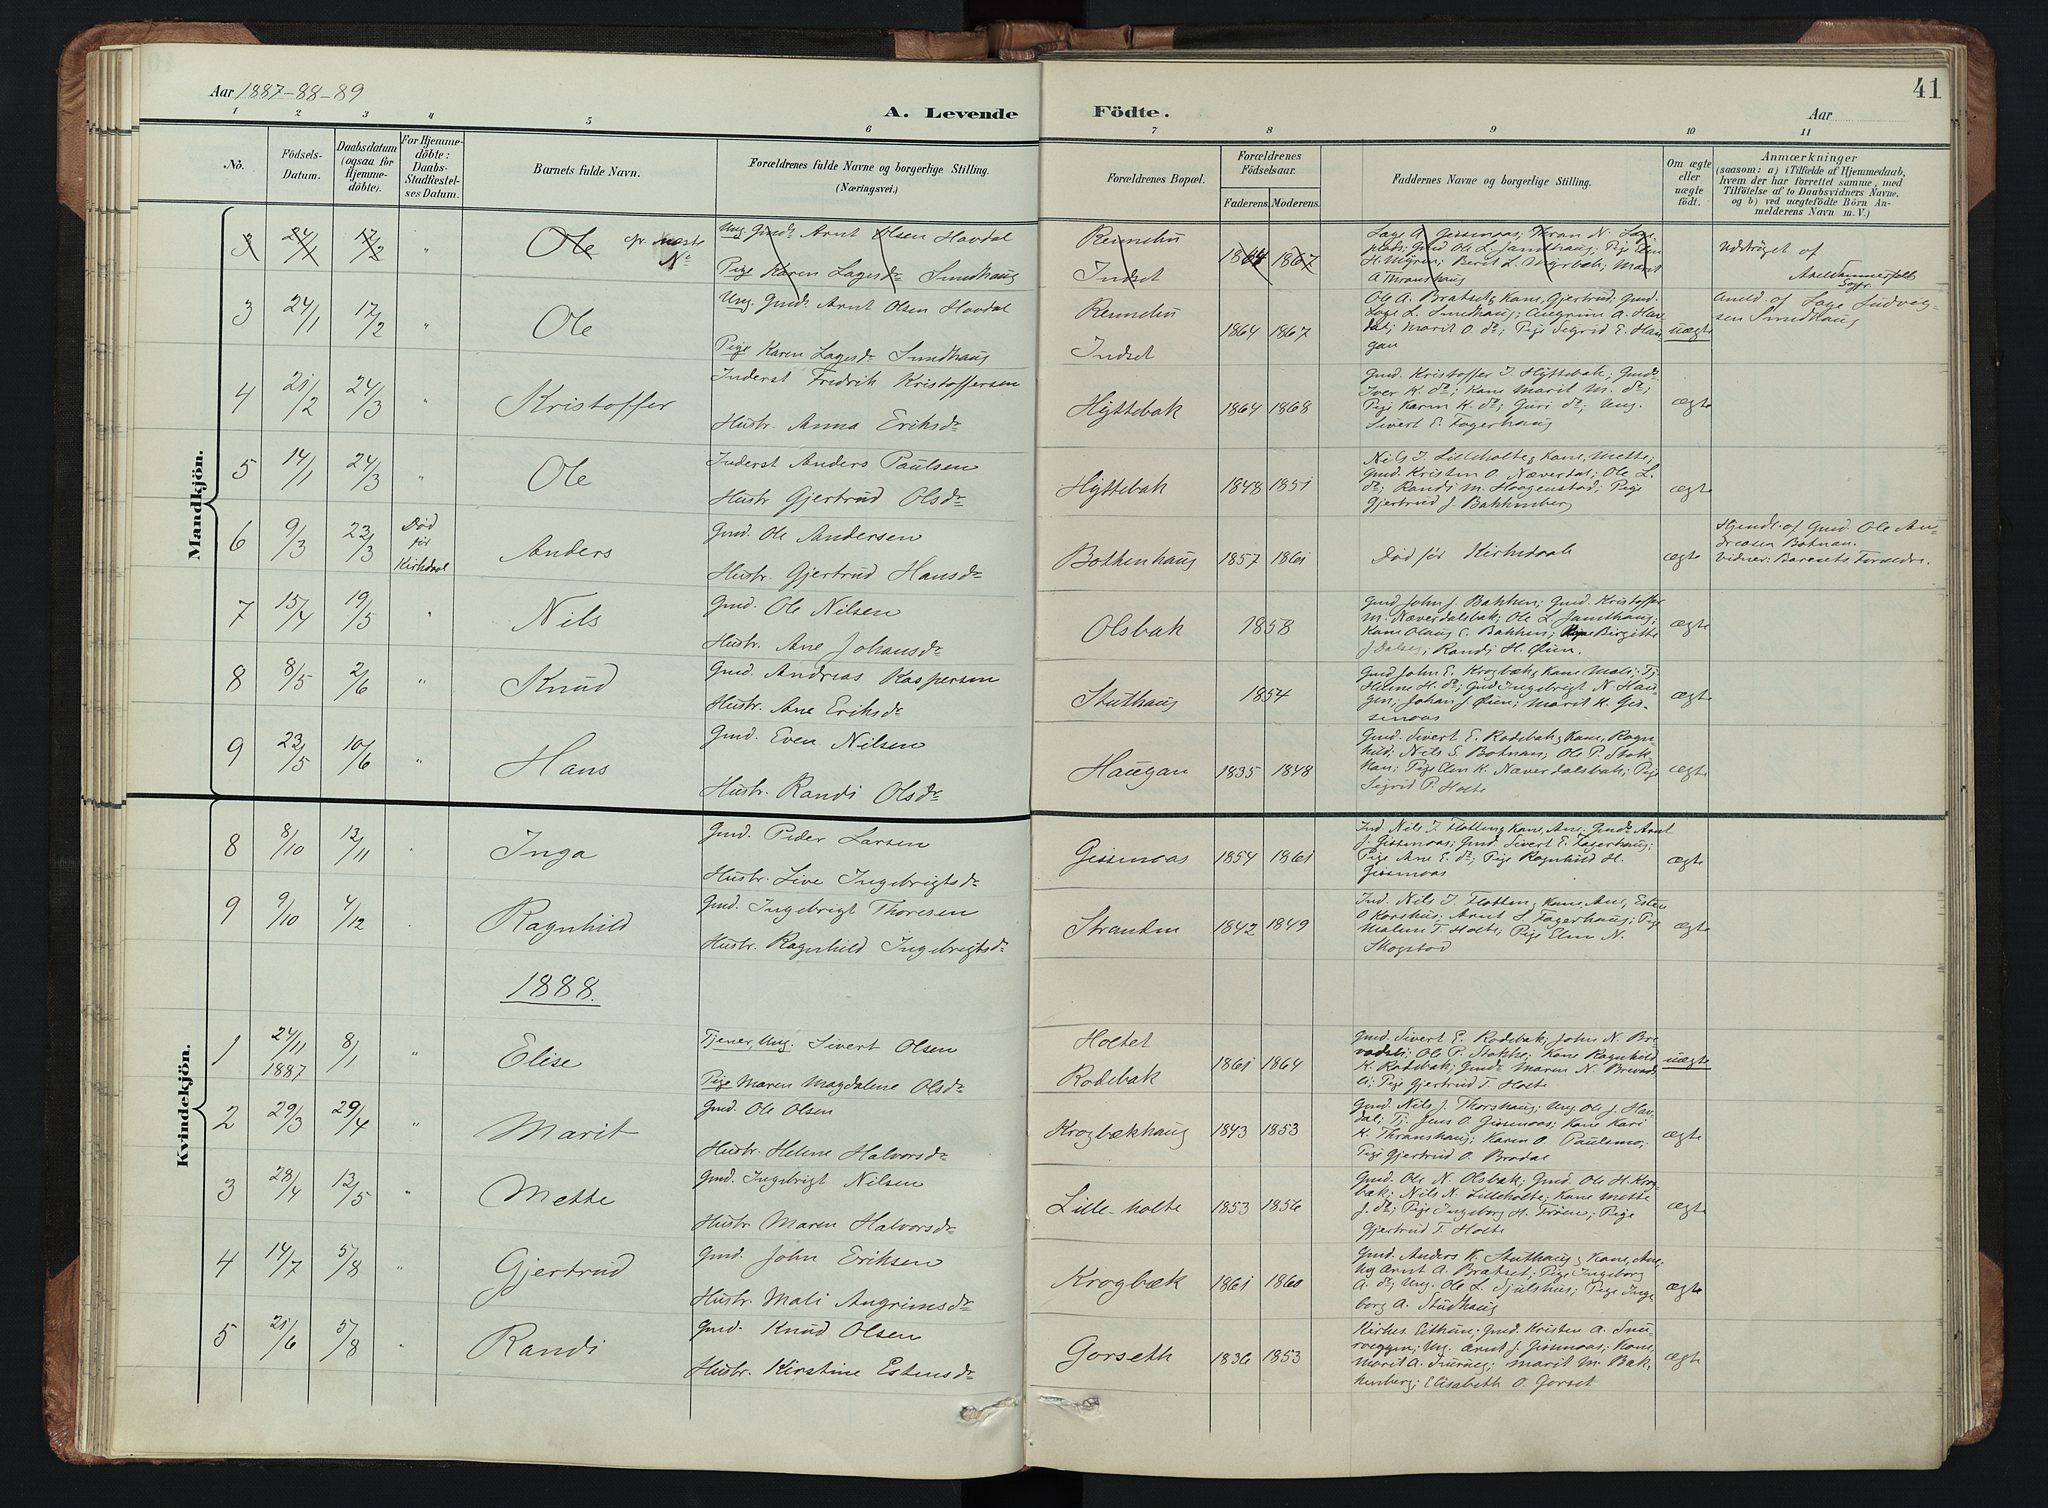 Aar 1887-88-89
A. Levende
Födte.
Aar
41
1 2 3 4 5 6 7 8 9 10 11
No.
Födsels-Datum.
Daabsdatum (ogsaa for Hjemme-döbte).
For Hjemme-döbte: Daabs-Stadfæstel-ses Datum.
Barnets fulde Navn.
Forældrenes fulde Navne og borgerlige Stilling. (Næringsvei.)
Forældrenes Bopæl.
Forældrenes Födselsaar.
Faderens. Moderens.
Faddernes Navne og borgerlige Stilling.
Om ægte eller uægte födt.
Anmærkninger
(saasom: a) i Tilfælde af Hjemmedaab, hvem der har forrettet samme, med Tilföielse af to Daabsvidners Navne. og b) ved uægtefödte Börn An-melderens Navn m. V.)
Mandkjön.
3 24/1 17/2 " Ole cfr. næste No
Ung. Gmds. Arnt Olsen Havdal
Pige Karen Lagesdr Smidhaug
Rennebu
Indset
1864 1867
Udströget af
3 24/1 17/2 " Ole
Ung. Gmds. Arnt Olsen Havdal
Pige Karen Lagesdr Smidhaug
Rennebu
Indset
1864 1867
Ole A. Bratset; Kone Gjertrud; Gmd.
uægte
Anmld. af Lage Ludvig-
sen Smidhaug
4 21/2 24/3 " Kristoffer
Inderst Fredrik Kristoffersen
Hustr. Anna Eriksdr
Hyttebak
1864 1868
Gmd. Kristoffer I. Hyttebak; Gmds.
Iver K. do; Kone Marit M. do;
Pige Karen K. do; Guri do; Ung.
Sivert E. Fagerhaug
ægte
5 14/1 24/3 " Ole
Inderst Anders Paulsen
Hustr Gjertrud Olsdr
Hyttebak
1848 1851
Nils I. Lilleholte; Kone Mette;
Gmd. Kristen O. Næverdal; Ole L.
do; Randi M. Haagenstad; Pige
Gjertrud J. Bakkenberg
ægte
6 9/3 23/3 Död för Kirkdaab
Anders
Gmd. Ole Andersen
Hustr. Gjertrud Hansdr
Bothenhaug
1857 1861
Död för Kirkedaab
ægte
Hjmdt. af Gmd. Ole An-
dreasen Botnan.
Vidner: Barnets Forældre.
7 15/4 19/5 " Nils
Gmd. Ole Nilsen
Hustr. Ane Johansdr
Olsbak
1858
Gmd John J. Bakken; Gmd. Kristoffer
M. Næverdalsbak; Ole L. Jamthaug;
Kone Olaug E. Bakken; Pige Birgitte
J Dalseg; Randi H. Øien.
ægte
8 8/5 2/6 " Knud
Gmd. Andreas Kaspersen
Hustr. Ane Eriksdr
Stuthaug
1854
Gmd John E. Krogbæk; Kone Mali; Tj.
Helene H. do; Gmd Ingebrigt N. Hau-
gen; Johan J. Øien; Marit K. Gis-
sinoas
ægte
9 23/5 10/6 " Hans
Gmd. Even Nilsen
Hustr. Randi Olsdr
Haugan
1835 1848
Gmd. Sivert E. Rodebak; Kone Ragn-
hild; Nils E. Botnan; Ole P. Stok-
kan; Pige Elen K. Næverdalsbak; Pige
Sigrid P. Holte
ægte
Kvindekjön.
8 8/10 13/11 Inga
Gmd. Peder Larsen
Hustr. Live Ingebrigtsdr
Gissinoas
1854 1861
Ind. Nils I. Flotten; Kone Ane; Gmds. Arnt
J. Gissinoas; Gmd Sivert E. Fagerhaug;
Pige Ane E. do; Pige Ragnhild H.
Gissinoas
ægte
9 9/10 4/12 Ragnhild
Gmd. Ingebrigt Thoresen
Hustr. Ragnhild Ingebrigtsdr
Stranden
1842 1849
Ind. Nils I. Flotten; Kone Ane; Esten
O Korshus; Arnt S Fagerhaug; Pige
Malene T. Holte; Pige Elen N.
Skogstad
ægte
1888.
1 24/11 1887 8/1 " Elise
Tjener, Ung. Sivert Olsen
Pige Maren Magdalene Olsdr
Holtet
Rodebak
1861 1864
Gmd. Sivert E. Rodebak; John N. Bre-
vadsli; Ole P. Stokke; Kone Ragnhild
K. Rodebak; Gmds. Maren N. Brevads-
li; Pige Gjertrud T. Holte
uægte
2 29/3 29/4 " Marit
Gmd. Ole Olsen
Hustr. Helene Halvorsdr
Krogbækhaug
1843 1853
Gmd. Nils J. Thorshaug; Ung. Ole J. Hav-
dal; Tj. Jens O. Gissinoas; Kone Kari
K. Thranshaug; Karen O. Paulsmo;
Pige Gjertrud O. Bradal
ægte
3 28/4 13/5 " Mette
Gmd. Ingebrigt Nilsen
Hustr Maren Halvorsdr
Lille-holte
1853 1856
Gmd. Ole N. Olsbak; Gmd. Ole H. Krog-
bæk; Nils N. Lilleholte; Kone Mette
J. do; Pige Ingeborg H. Tröen; Pige
Gjertrud T. Holte
ægte
4 14/7 5/8 " Gjertrud
Gmd. John Eriksen
Hustr. Mali Angrimsdr
Krogbæk
1861 1860
Gmd. Anders K. Stuthaug; Kone Ane;
Ung Arnt A. Bratset; Pige Ingeborg
A. do; Ung. Ole L. Sjulshus; Pige Inge-
borg A. Studhaug
ægte
5 21/6 5/8 Randi
Gmd. Knud Olsen
Hustr. Kirstine Estensdr
Gorseth
1836 1853
Marit M. Bak-
kenberg; Elisabeth O. Gorset
ægte